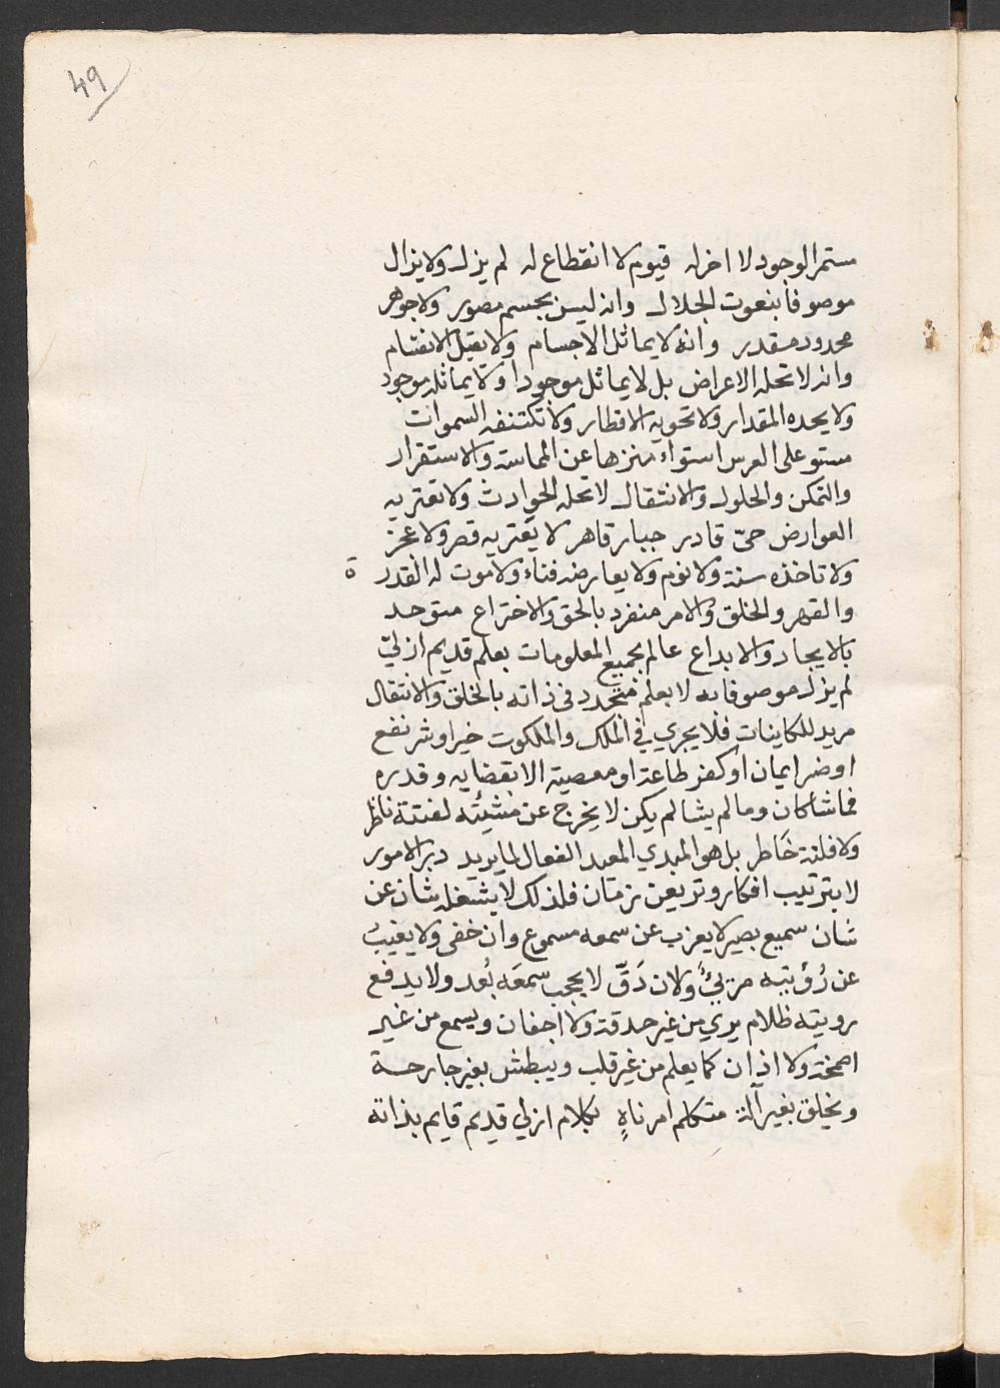 49
مستمر الوجود لا اخر له قيوم لا انقطاع له لم يزل ولا يزال
موصوفا بنعوت الجلال وانه ليس بجسم مصور ولا جوهر
محدود مقدر وانه لا يماثل الاجسام ولا يقبل الانقسام
وانه لا تحله الاعراض بل لا يماثل موجودا ولا يماثله موجود
ولا يحده المقدار ولا تحويه الاقطار ولا تكتنفه السموات
مستو على العرس استواء منزها عن المماسة والاستقرار
والتمكن والحلول والانتقال لا تحله الحوادث ولا تعتريه
العوارض حيّ قادر جبار قاهر لا يعتريه قصر ولا عجز
ولا تاخذه سنة ولا نوم ولا يعارضه فناء ولا موت له القدر ة
والقهر والخلق والامر منفرد بالحق والاختراع متوحد
بالايجاد والابداع عالم بجميع المعلومات بعلم قديم ازليّ
لم يزل موصوفا به لا بعلم متجدد في ذاته بالخلق والانتقال
مريد للكاينات فلا يجري في الملك والملكوت خير او شر نفع
او ضر ايمان او كفر طاعة او معصية الا بقضايه وقدره
فما شا كان وما لم يشا لم يكن لا يخرج عن مشيئته لفتة ناظر
ولا فلتة خَاطر بل هو المبدي المعيد الفعال لما يريد دبر الامور
لا بترتيب افكار وتربص زمان فلذلك لا يشغله شان عن
شان سميع بصير لا يعزب عن سمعه مسموع وان خفى ولا يغيبُ
عن رُؤيته مرئيٌ ولان دَقّ لا يحجب سمعَه بُعد ولا يدفع
رويته ظلام يري من غير حدقة ولا اجفان ويسمع من غير
اصمخة ولا اذان كما يعلم من غير قلب ويبطش بغير جارحة
ويخلق بغير آلة متكلم امر ناهٍ بكلام ازلي قديم قايم بذاته